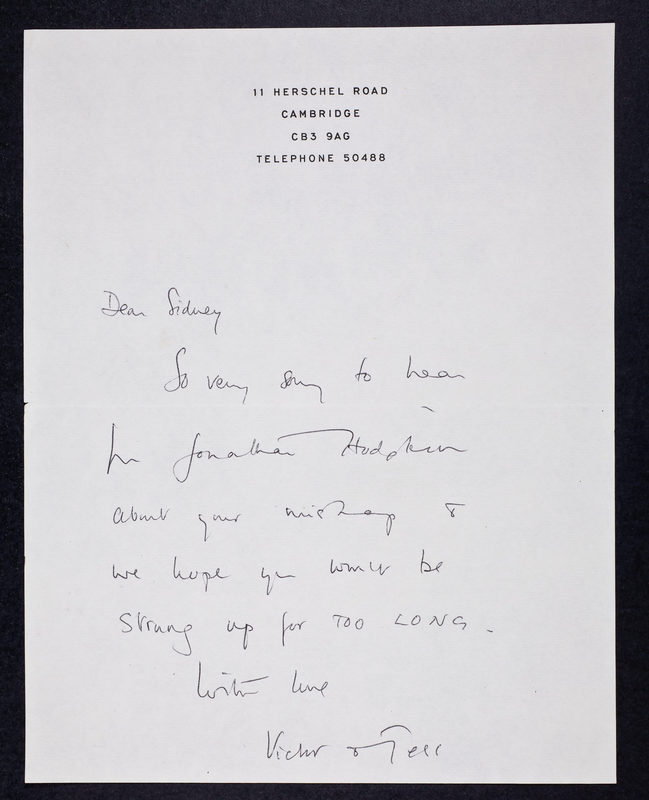 11 HERSCHEL ROAD
CAMBRIDGE
CB3 9AG
TELEPHONE 50488
Dear Sidney
So very sorry to hear
fm Jonathan Hodgkin
about your mishap &
we hope you won't be
strung up for TOO LONG.
With love
Victor & Tess